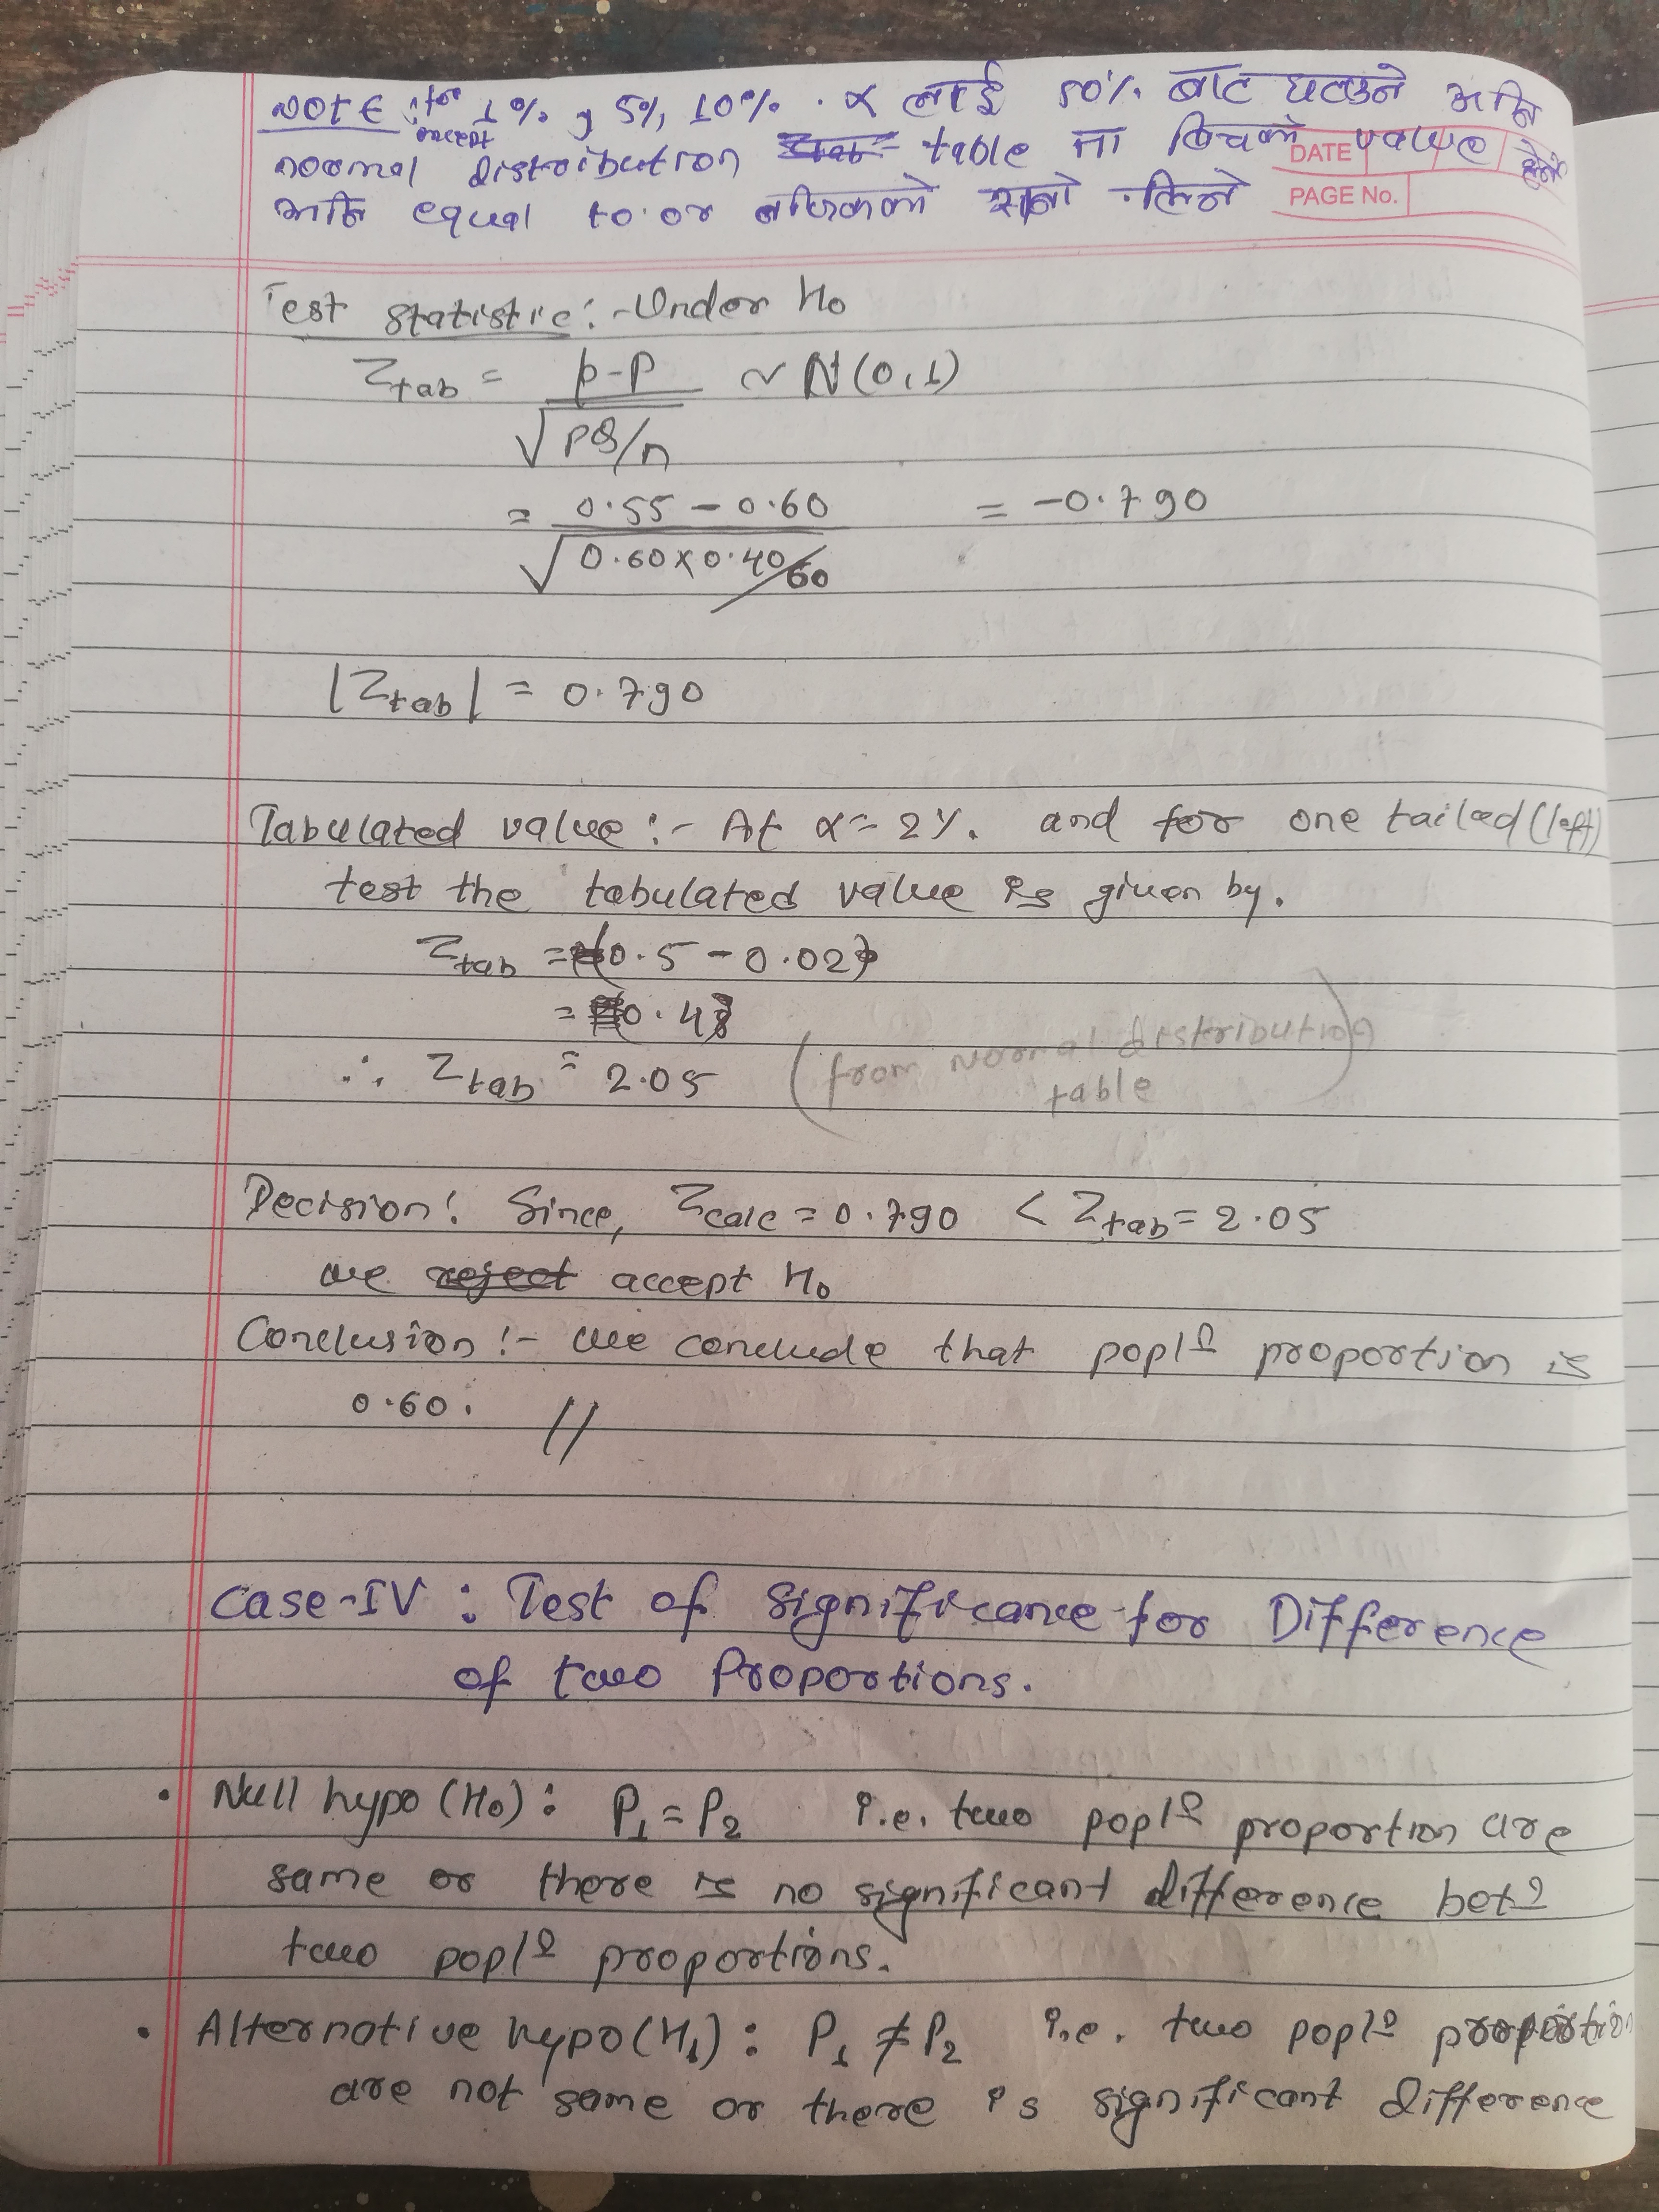 NOTE : for 1%, 5%, 10% . α लाई 50% बाट घटाउने अनि
except
normal distribution table मा बिचको value हेर्ने
अनि equal to or नजिकको सानो लिने
DATE
PAGE No.
Test statistic :- Under H₀
Z_tab = p-P / √PQ/n ~ N(0,1)
= 0.55 - 0.60 / √0.60×0.40/60 = -0.790
|Z_tab| = 0.790
Tabulated value :- At α = 2%. and for one tailed (left)
test the tabulated value is given by.
Z_tab = 0.5 - 0.02
= 0.48
∴ Z_tab = 2.05 (from Normal distribution
table)
Decision: Since, Z_calc = 0.790 < Z_tab = 2.05
we reject accept H₀
Conclusion :- we conclude that popl<sup>n</sup> proportion is
0.60. //
Case-IV : Test of Significance for Difference
of two Proportions.
• Null hypo (H₀) : P₁ = P₂ i.e. two popl<sup>n</sup> proportion are
same or there is no significant difference bet<sup>n</sup>
two popl<sup>n</sup> proportions.
• Alternative hypo (H₁) : P₁ ≠ P₂ i.e. two popl<sup>n</sup> proportion
are not same or there is significant difference